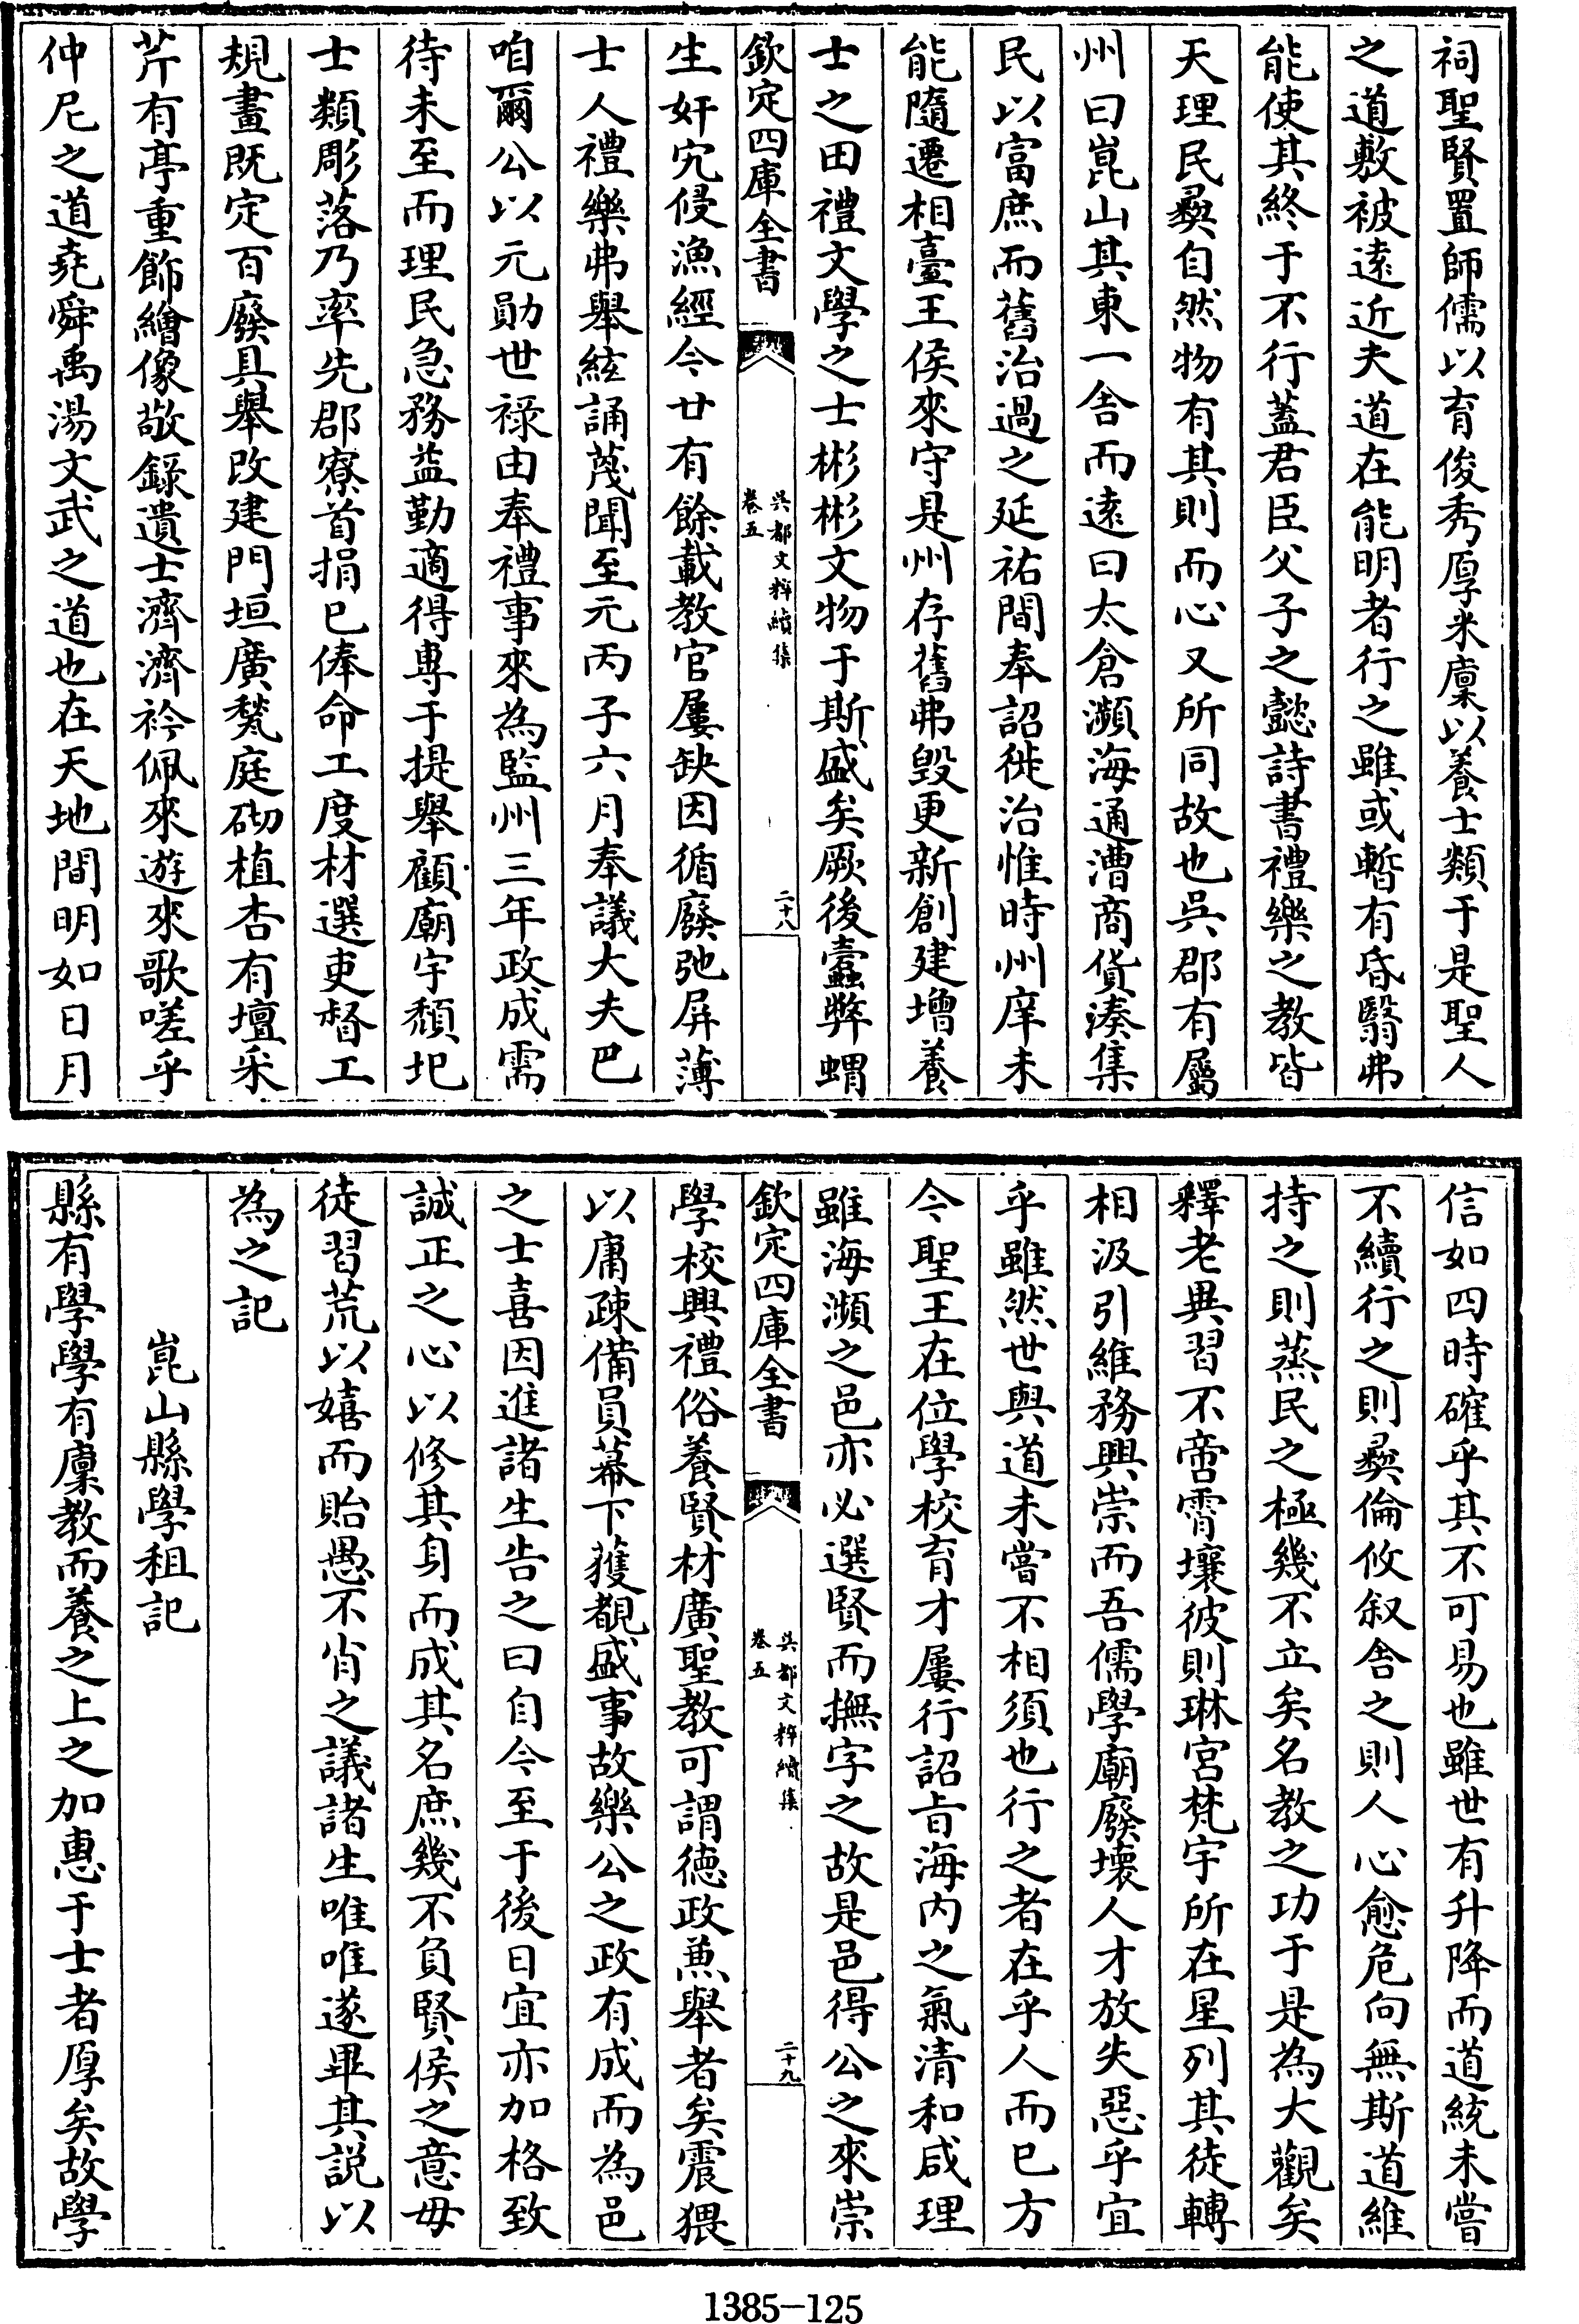 祠聖賢置師儒以育俊秀厚米廩以養士類于是聖人
之道敷被遠近夫道在能明者行之雖或暫有昏翳弗
能使其終于不行蓋君臣父子之懿詩書禮樂之教皆
天理民彞自然物有其則而心又所同故也吳郡有屬
州曰崑山其東一舎而遠曰太倉瀕海通漕商貨湊集
民以富庶而舊治過之延祐間奉詔徙治惟時州庠未
能隨遷相臺王侯來守是州存舊弗毀更新創建增養
士之田禮文學之士彬彬文物于斯盛矣厥後蠧弊蝟
欽定四庫全書
吳都文粹續集
卷五
二十八
生奸宄侵漁經今廿有餘載教官屢缺因循廢弛屏薄
士人禮樂弗舉絃誦蔑聞至元丙子六月奉議大夫巴
咱爾公以元勛世祿由奉禮事來為監州三年政成需
待未至而理民急務益勤適得專于提舉顧廟宇頹圮
士類彫落乃率先郡寮首捐已俸命工度材選吏督工
規畫既定百廢具舉改建門垣廣甃庭砌植杏有壇采
芹有亭重飾繪像敬錄遺士濟濟衿佩來遊來歌嗟乎
仲尼之道堯舜禹湯文武之道也在天地間明如日月
信如四時確乎其不可易也雖世有升降而道統未嘗
不續行之則彞倫攸叙舎之則人心愈危向無斯道維
持之則蒸民之極幾不立矣名教之功于是為大觀矣
釋老異習不啻霄壤彼則琳宮梵宇所在星列其徒轉
相汲引維務興崇而吾儒學廟廢壞人才放失惡乎宜
乎雖然世與道未嘗不相須也行之者在乎人而已方
今聖王在位學校育才屢行詔㫖海内之氣清和咸理
雖海瀕之邑亦必選賢而撫字之故是邑得公之來崇
欽定四庫全書
吳都文粹續集
卷五
二十九
學校興禮俗養賢材廣聖教可謂德政兼舉者矣震猥
以庸疎備員幕下獲覩盛事故樂公之政有成而為邑
之士喜因進諸生告之曰自今至于後日宜亦加格致
誠正之心以修其身而成其名庶幾不負賢侯之意毋
徒習荒以嬉而貽愚不肖之議諸生唯唯遂畢其説以
為之記
崑山縣學租記
縣有學學有廩教而養之上之加惠于士者厚矣故學
1385-125